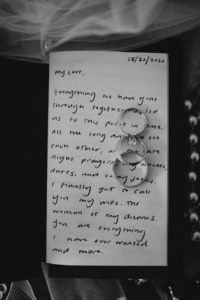 18/20/2020
my love,
Everything we have gone
through together has led
us to this point in time.
All the long to see
each other, late
night prayers,
dates, and
I finally get to call
you my wife. The
woman of my dreams.
You are everything
I have ever wanted
and more.